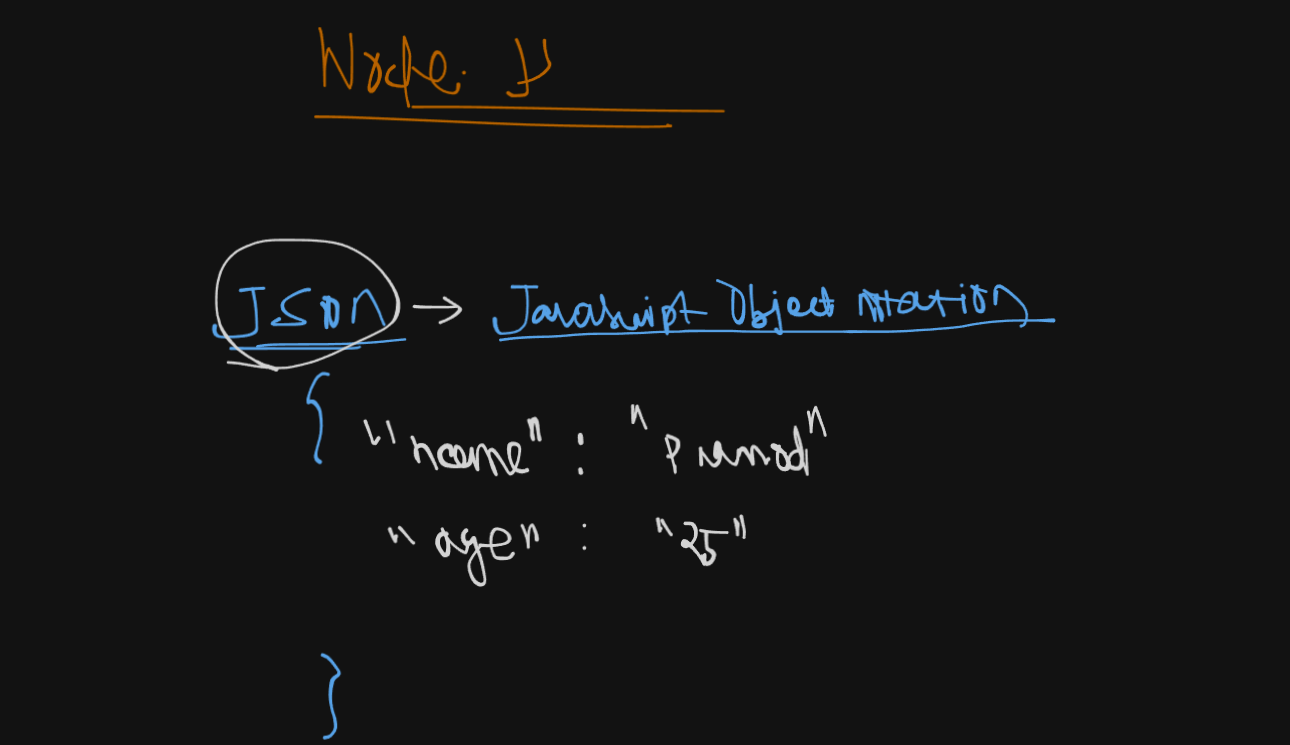 Node. JS
JSON → Javascript Object Notation
{
"name" : "Pramod"
"age" : "25"
}